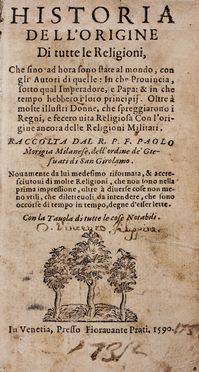 HISTORIA
DELL'ORIGINE
Di tutte le Religioni,
Che sino ad hora sono state al mondo, con
gli Autori di quelle: In che Prouincia,
sotto qual Imperadore, e Papa: & in che
tempo hebbero i loro principij. Oltre à
molte illustri Donne, che spreggiarono i
Regni, e fecero vita Religiosa Con l'ori-
gine ancora delle Religioni Militari.
RACCOLTA DAL R. P. F. PAOLO
Morigia Milanese, dell'ordine de' Gie-
suati di San Girolamo.
Nouamente da lui medesimo riformata, & accre-
sciutoui di molte Religioni, che non sono nella
prima impressione, oltre à diuerse cose non me-
no vtili, che diletteuoli da intendere, che sono
occorse di tempo in tempo, degne d'esser lette.
Con la Tauola di tutte le cose Notabili.
D. Vincenzo
In Venetia, Presso Fiorauante Prati. 1590.